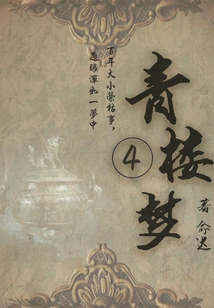 百年大小荣枯事,
过眼浑如一梦中
青楼梦
④
俞达 著